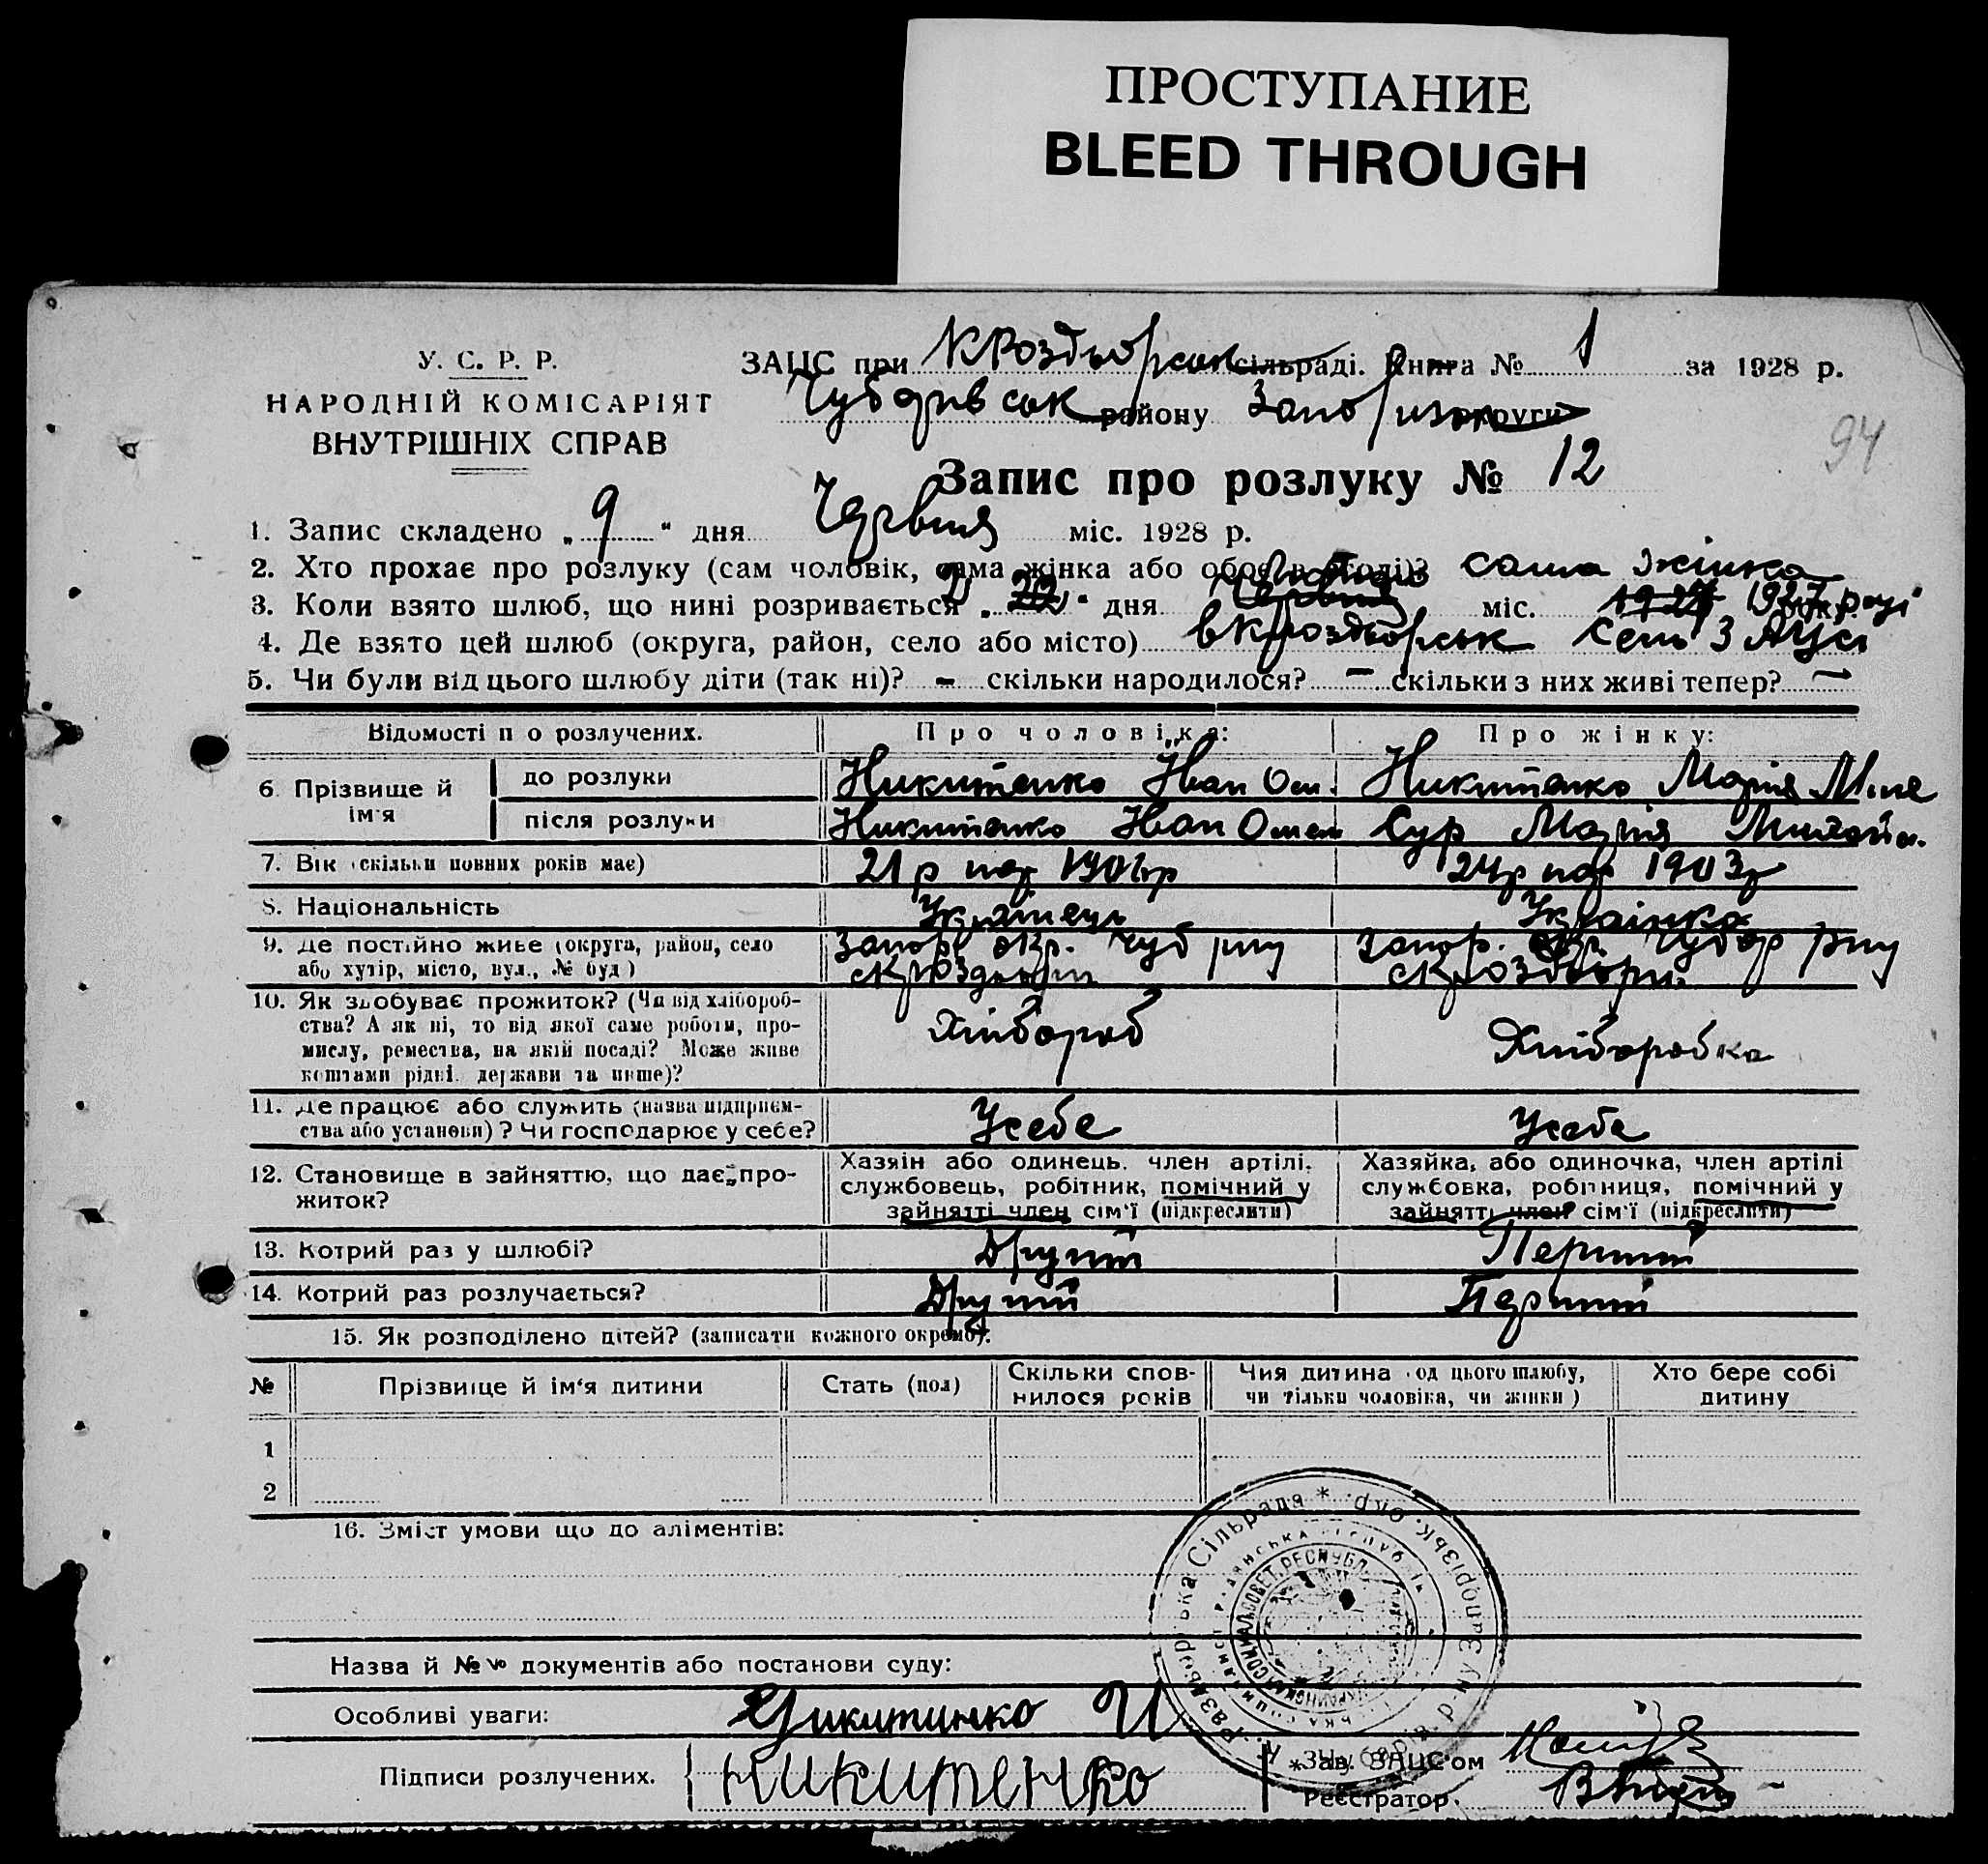 ПРОСТУПАНИЕ
BLEED THROUGH
У. С. Р. Р.
НАРОДНІЙ КОМІСАРІЯТ
ВНУТРІШНІХ СПРАВ
ЗАЦС при КРоздьорськ сільраді. Книга № 1 за 1928 р.
району округи
94
Запис про розлуку № 12
1. Запис складено „ 9 “ дня Червня міс. 1928 р.
2. Хто прохає про розлуку (сам чоловік, сама жінка або обоє в згоді)? сама жінка
3. Коли взято шлюб, що нині розривається „ “ дня міс. 1927 році
4. Де взято цей шлюб (округа, район, село або місто) в Кроздьорськ ЗАЦСі
5. Чи були від цього шлюбу діти (так ні)? - скільки народилося? - скільки з них живі тепер? -
Відомості п о розлучених. Про чоловіка: Про жінку:
6. Прізвище й ім'я до розлуки Никитенко Іван Ом. Никитенко Марія
після розлуки Никитенко Іван Омел Сур Марія Михайл.
7. Вік (скільки повних років має) 21 р нар 24 р нар 1903 р
8. Національність Українець Українка
9. Де постійно живе (округа, район, село Запор окр. Чуб рну Запор. окр. Чубар рну
або хутір, місто, вул., № буд) скроздьори скроздьори
10. Як здобуває прожиток? (Чи від хлібороб-
ства? А як ні, то від якої саме роботи, про- Хлібороб Хліборобка
мислу, ремества, на якій посаді? Може живе
коштами рідні, держави та инше)?
11. Де працює або служить (назва підприєм- Усебе Усебе
ства або установи)? Чи господарює у себе?
12. Становище в зайняттю, що дає про-
житок?
Хазяїн або одинець, член артілі,
службовець, робітник, помічний у
зайнятті член сім'ї (підкреслити)
Хазяйка, або одиночка, член артілі
службовка, робітниця, помічний у
зайнятті член сім'ї (підкреслити)
13. Котрий раз у шлюбі? Другий Перший
14. Котрий раз розлучається? Другий Перший
15. Як розподілено дітей? (записати кожного окремо).
№ Прізвище й ім'я дитини Стать (пол) Скільки спов-нилося років Чия дитина (од цього шлюбу, чи тільки чоловіка, чи жінки) Хто бере собі дитину
1
2
16. Зміст умови що до аліментів:
Назва й №№ документів або постанови суду:
Особливі уваги: Никитинко И
Підписи розлучених. Никитенко
Зав. ЗАЦС'ом
Реєстратор.